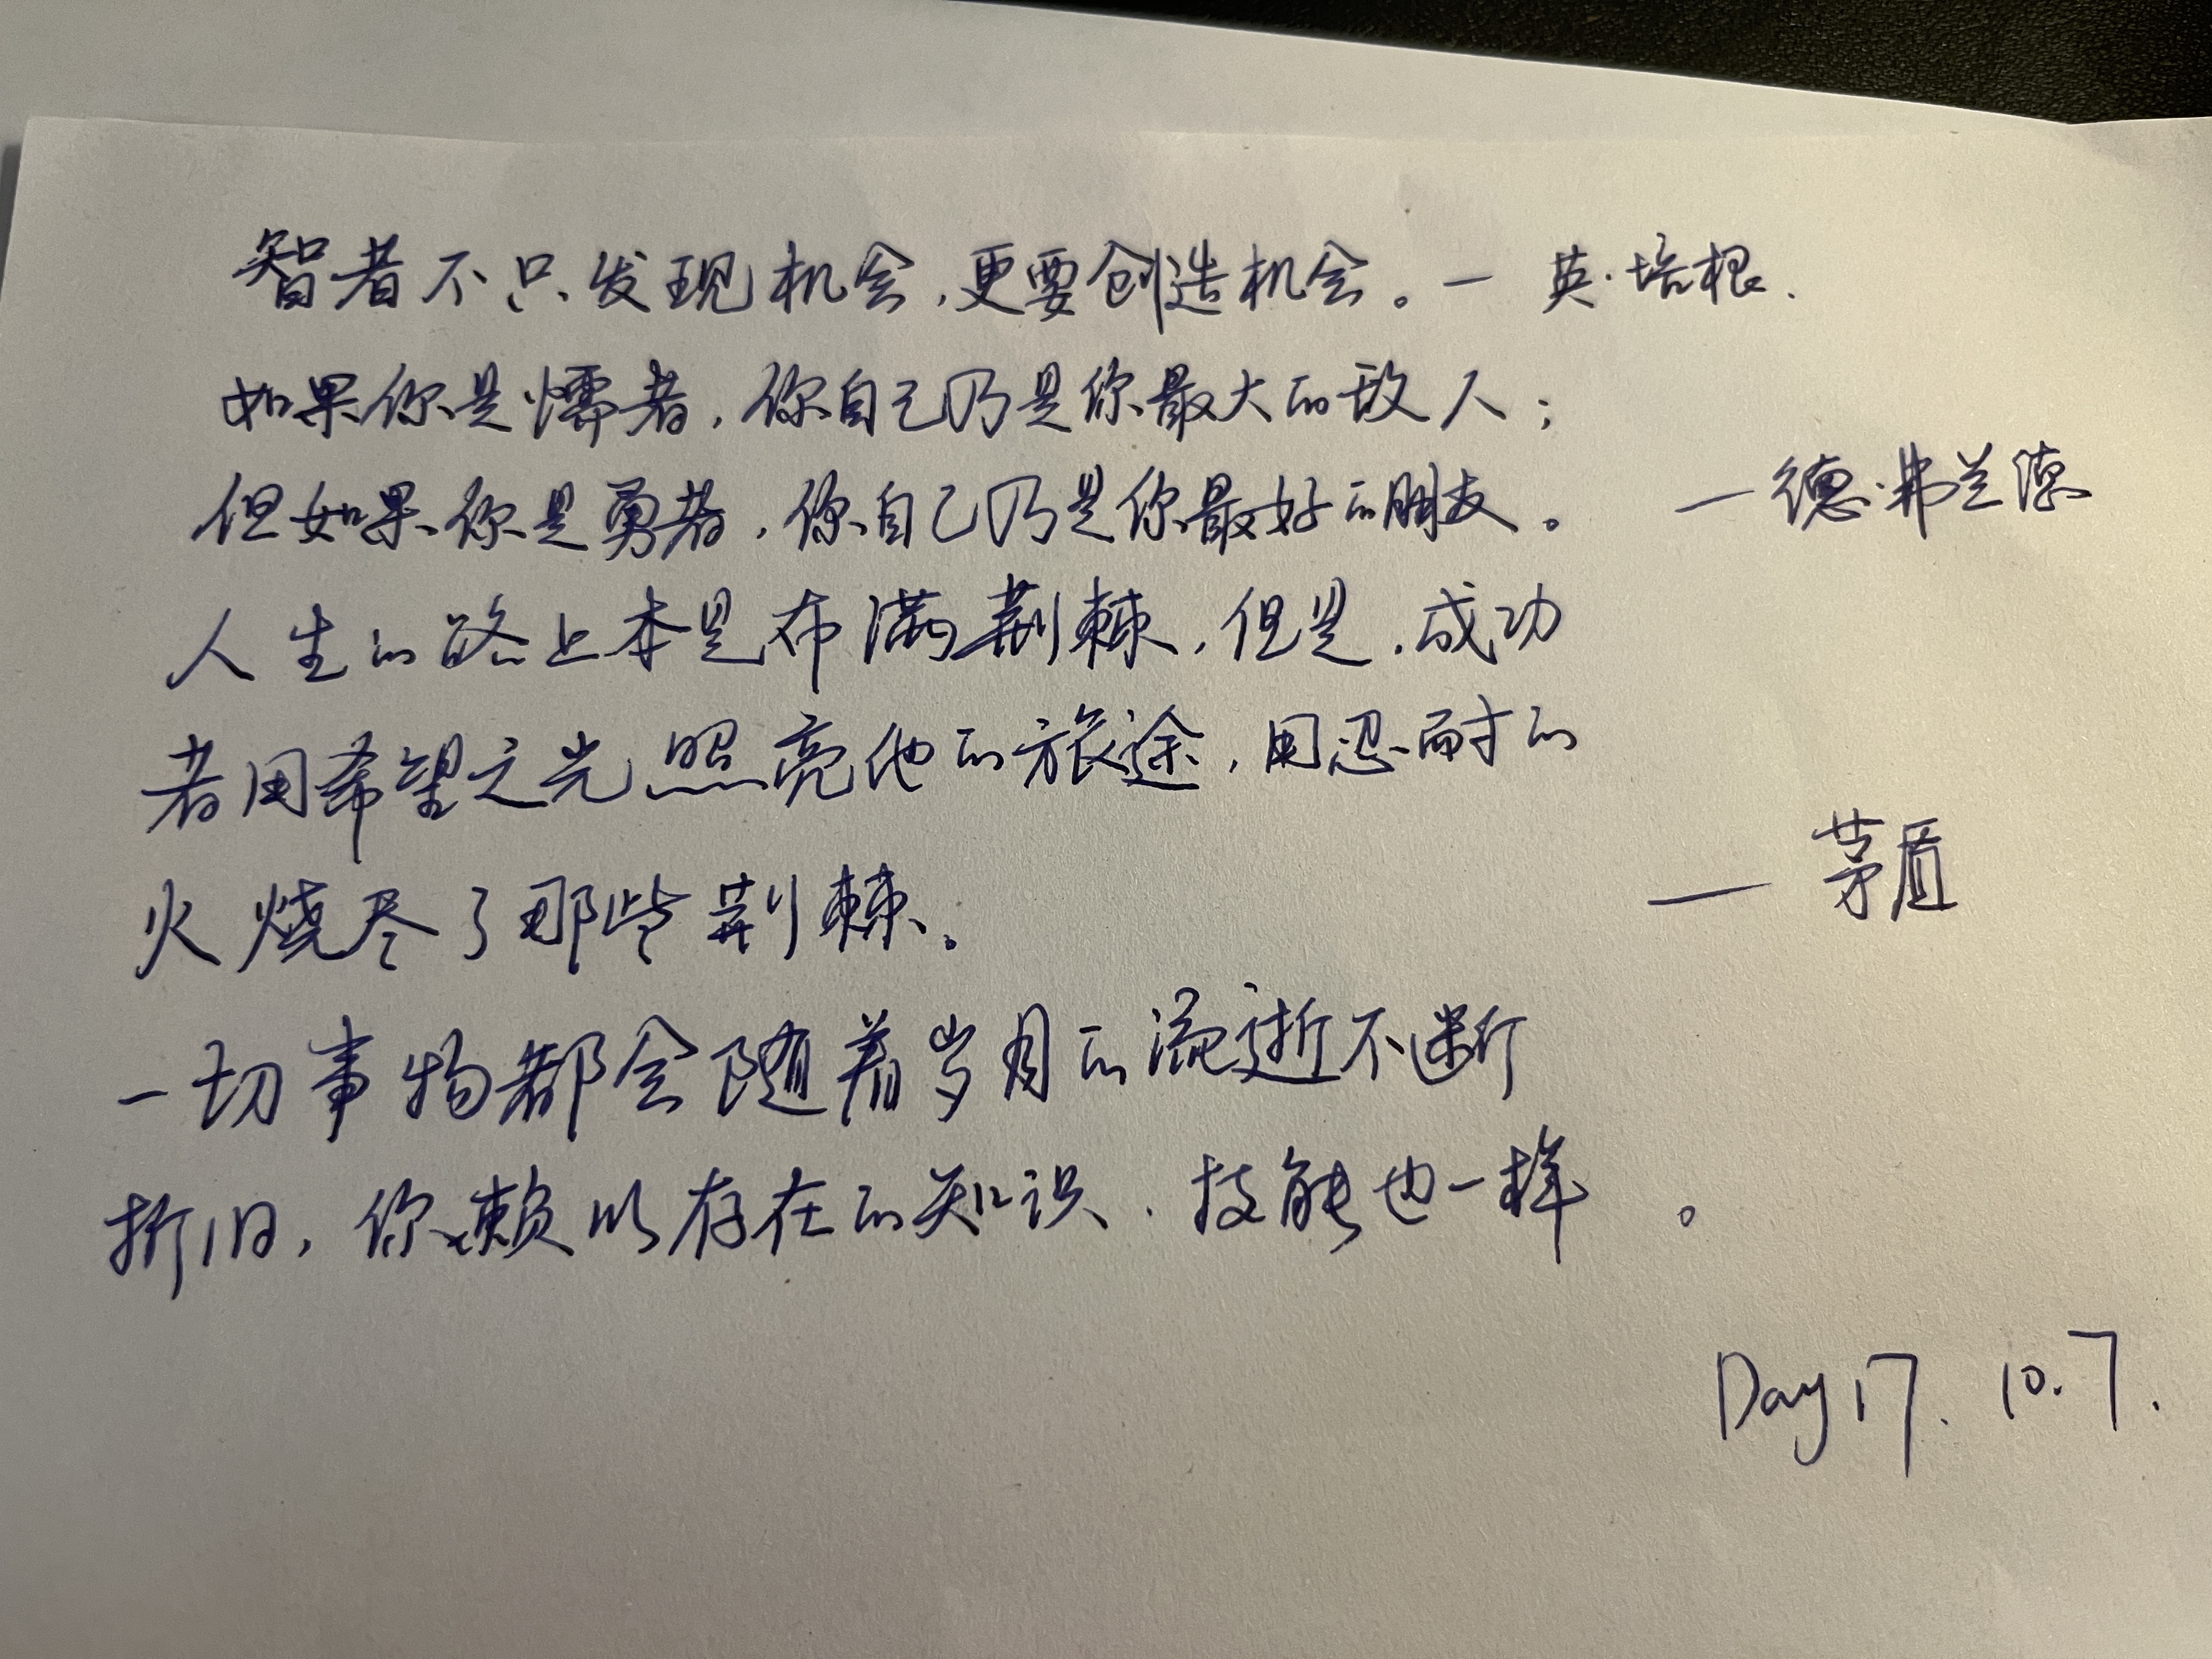 智者不只发现机会,更要创造机会。— 英·培根.
如果你是懦者,你自己乃是你最大的敌人;
但如果你是勇者,你自己乃是你最好的朋友。 —德·弗兰德
人生的路上本是布满荆棘,但是,成功
者用希望之光照亮他的旅途,用忍耐的
火烧尽了那些荆棘。 — 茅盾
一切事物都会随着岁月的流逝不断
折旧,你赖以存在的知识、技能也一样。
Day 17. 10.7.